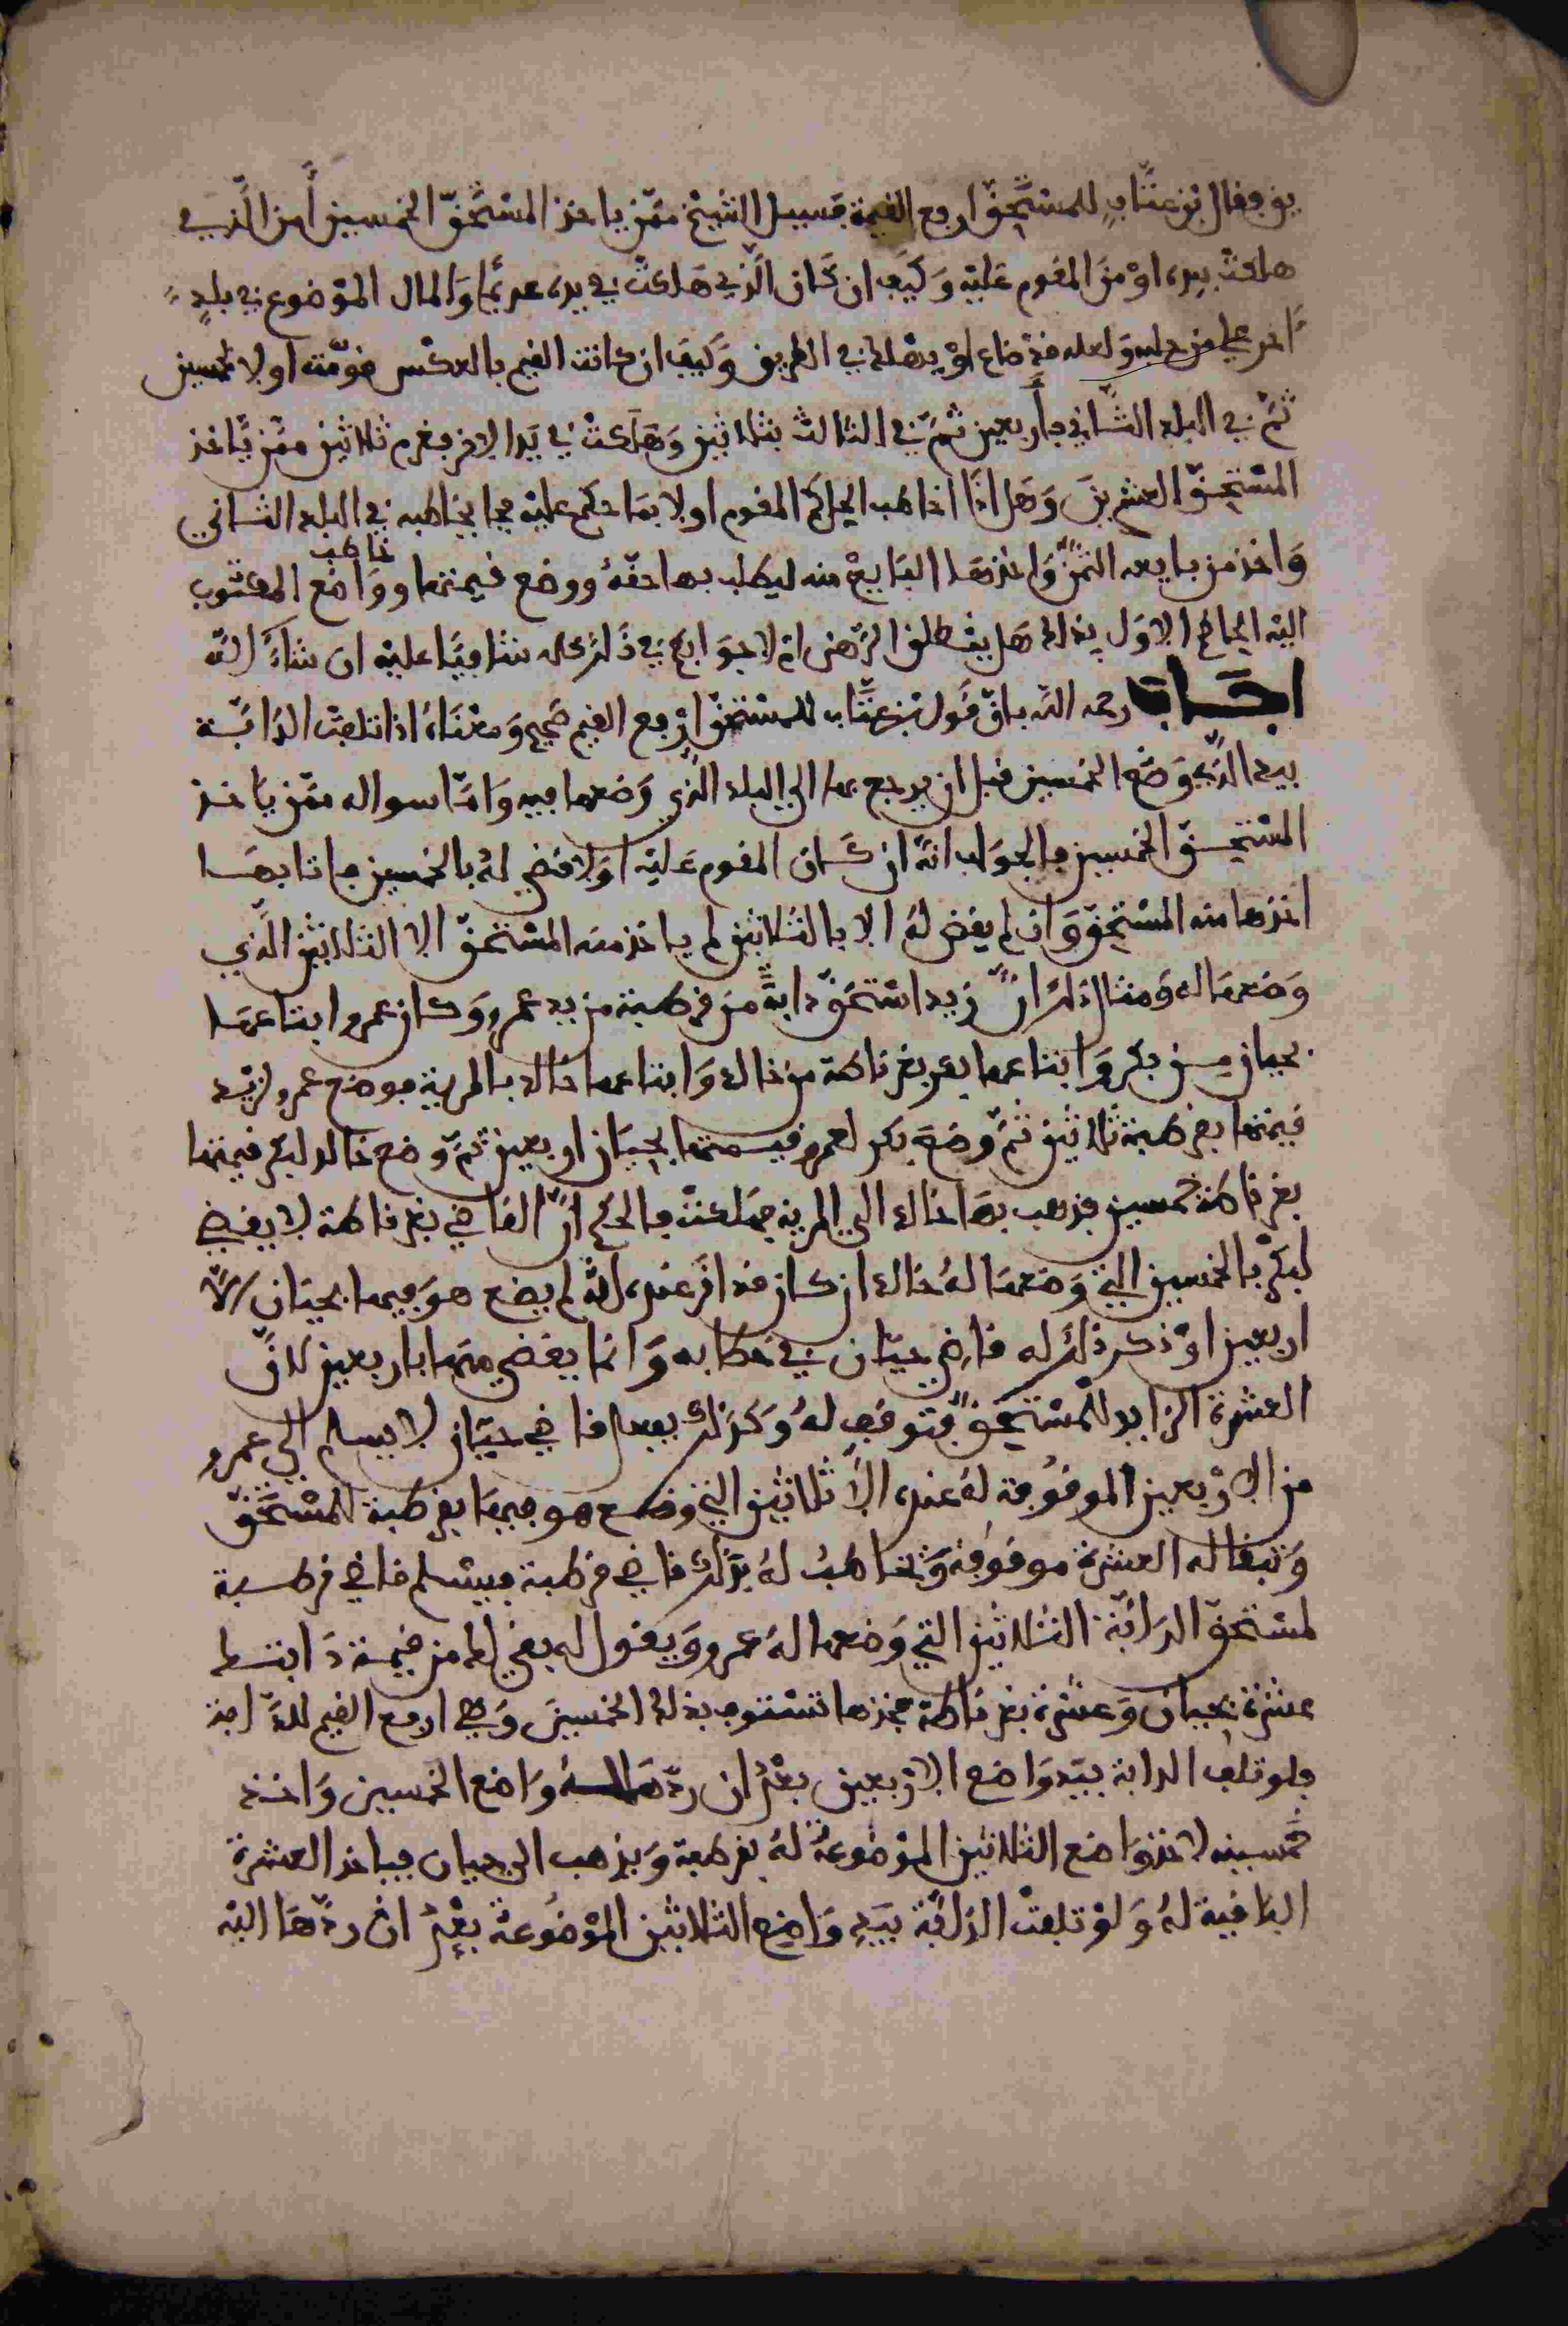 يوفٍ فقال بن عتّاب للمستحقّ ارفع القيمة فسيل الشيخ ممّن ياخذ المستحقّ الخمسين أمن الّذي
هلكت بيده اوْ منَ المقوم عَليْه وَكيْف ان كَان الّذي هَلكتْ في يده عديمًا وَالمال المَوْضوع في بلدٍ
اخر على من وَلعله قدْ ضاع اوْ يهْلك في الطريق وَكيْف ان كانت القيم بالعكْس قوّمتْ اولا بخمسين
ثمّ في البلد الثّاني بأربعين ثمّ في الثالث بثلاثين وَهَلكتْ في يَد الاخر فغرم ثلاثين ممّن يّاخذ
المسْتحقّ العشرينَ وَهَل اذَا خاطب الحاكم المقوم اولا بمَا حكم عليْه فجا بخطابه في البلد الثّاني
وَاخذ من بايعه الثمَنَ وَاخذهَا البَايعُ منه ليطلب بها حقّهُ ووضع قيمتها ووَاضع خاطب المكتوب
اليْه الحاكمَ الاوّل بذلك هَل ينْطلق الرّهن ام لا جوَابكم في ذَلكَ كله شافيًا عليْه ان شاءَ اللّه
اجَاب رحمه اللّه بانّ قوْل بن عتّاب للمسْتحقّ ارْفع القيم صَحيح وَمعْنَاهُ اذا تلفتْ الدّابّة
بيد الّذي وَضَع الخمسين قبل ان يرجع بها الى البلد الّذي وَضعها فيه وَامّا سواله ممّن ياخذ
المسْتحقّ الخمسين فالجوَاب انهُ ان كَان المقوم عَليْه اوَلا قضي لهُ بالخمسين فاتا بهَا
اخذها منه المسْتحقّ وَان لم يقض لهُ الا بالثلاثين لم ياخذ منه المسْتحقّ الا الثلاثين الّذي
وَضعهَا له وَمثال ذلكَ انّ زيدا اسْتحقّ دابةً منْ قرطبة من يد عمرٍو وَكان عمرو ابتاعهَا
بجيان منْ بكر وَابتاعها بكر بغرناطة من خالد وَابتاعها خالد بالمرية فوضع عمرو لزيْد
قيمتها بقرطبة ثلاثين ثمّ وضعَ بكر لعمرو قيمتها بجيّان اربعين ثمّ وضع خالد لبكر قيمتها
بغرناطة خمسين فذهب بهَا خالد الى المرية فهَلكتْ فالحكم انّ القاضي بغرناطة لا يقضي
لبكْر بالخمسين التي وَضعهَا لهُ خالد ان كان قد اقر عنده انّه لم يضع هوَ فيها بجيّان الاّ
اربعين اوْ ذكر ذلكَ له قاضِي جيّان في خطابه وَانما يقضي منها باربعين لانّ
العشرة الزايد للمسْتحقّ فتوقفِ لهُ وَكذلك يفعل قاضي جيّان لا يسلم الى عمرو
من الارْبعين الموقوُفة لهُ عنده الاّ ثلاثين التي وضع هو فيهَا بقرطبة للمسْتَحقّ
وَتبقا له العشرة موقوُفة وَيخاطبُ لهُ بذلك قاضي قرطبة فيسْلم قاضي قرطبة
لمسْتحقّ الدّابّة الثلاثين التي وَضعها لهُ عمرو وَيقول له بقي لك من قيمة دَابتك
عشرة بجيان وَعشرة بغرناطة فخذها تسْتوف بذلك الخمسينَ وَهي ارفع القيم للدّابة
فلو تلف الدابة بيَد وَاضع الارْبعين بعْدَ ان ردّهَا لهُ وَاضع الخمسين وَاخذ
خمسينه لاخذ وَاضع الثلاثين المَوْضوعةُ لهُ بقرطبة وَيذهب الى جيان فياخذ العشرة
البَاقية لهُ وَلوْ تلفتْ الدّابّة بيَدِ وَاضع الثلاثين المَوْضُوعةْ بعْدَ ان ردّهَا اليْه